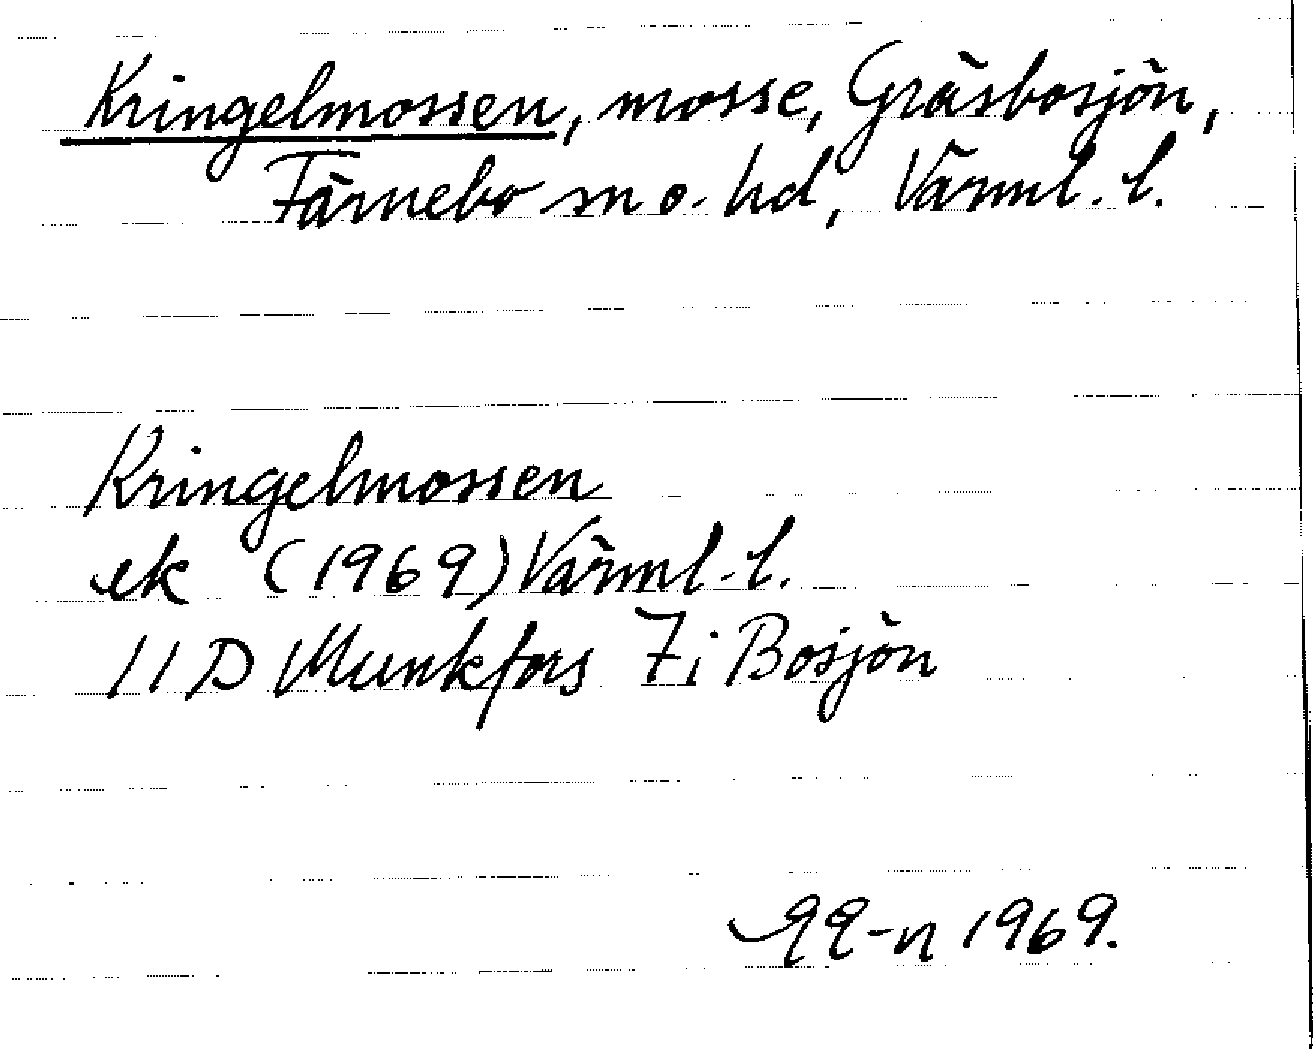 Kringelmossen, mosse, Gräsbosjön,
Färnebo sn o. hd, Värml. l.
Kringelmossen
ek (1969) Värml. l.
11 D Munkfors 7i Bosjön
1969.